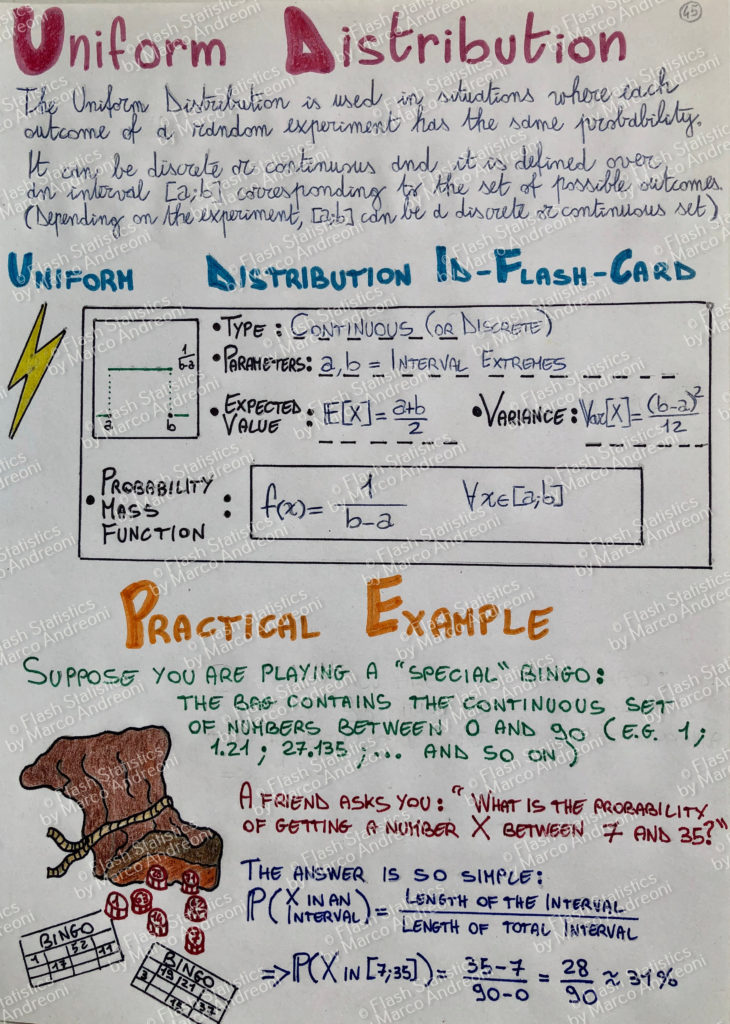 45
Uniform Distribution
The Uniform Distribution is used in situations where each
outcome of a random experiment has the same probability.
It can be discrete or continuous and it is defined over
an interval [a;b] corresponding to the set of possible outcomes.
(Depending on the experiment, [a;b] can be a discrete or continuous set)
UNIFORM DISTRIBUTION ID-FLASH-CARD
1/b-a
a b
• TYPE: CONTINUOUS (OR DISCRETE)
• PARAMETERS: a, b = INTERVAL EXTREMES
• EXPECTED VALUE: E[X] = a+b/2
• VARIANCE: Var[X] = (b-a)²/12
• PROBABILITY
MASS
FUNCTION :
f(x) = 1/b-a ∀x∈[a;b]
PRACTICAL EXAMPLE
SUPPOSE YOU ARE PLAYING A "SPECIAL" BINGO:
THE BAG CONTAINS THE CONTINUOUS SET
OF NUMBERS BETWEEN 0 AND 90 (E.G. 1;
1.21; 27.135;... AND SO ON)
A FRIEND ASKS YOU: "WHAT IS THE PROBABILITY
OF GETTING A NUMBER X BETWEEN 7 AND 35?"
THE ANSWER IS SO SIMPLE:
P(X IN AN INTERVAL) = LENGTH OF THE INTERVAL / LENGTH OF TOTAL INTERVAL
=> P(X IN [7;35]) = 35-7/90-0 = 28/90 ≈ 31%
BINGO
1 52 11
17
BINGO
15 21
3
15 37
© Flash Statistics
by Marco Andreoni